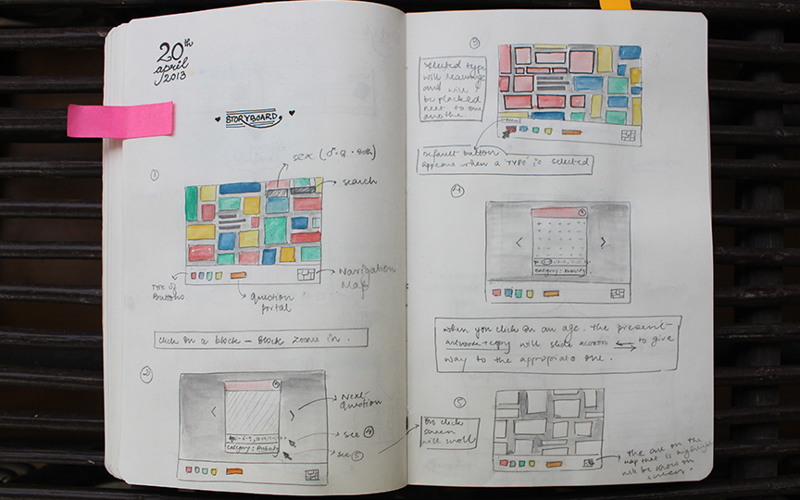 20th
april
2013
STORYBOARD
①
sex (♂ · ♀ · both)
search
Type of
Buttons
question
portal
Navigation
Map
Click on a block – Block zooms in.
②
Next
Question
see ④
see ⑤
category:
③
Selected type
will rearrange
and will
be placed
next to one
another
Default button
appears when a 'TYPE' is selected
④
category:
When you click on an age. the present
artwork + copy will slide across to give
way to the appropriate one.
⑤
On click
screen
will scroll
The one on the
map that is highlight
will be shown on
screen.